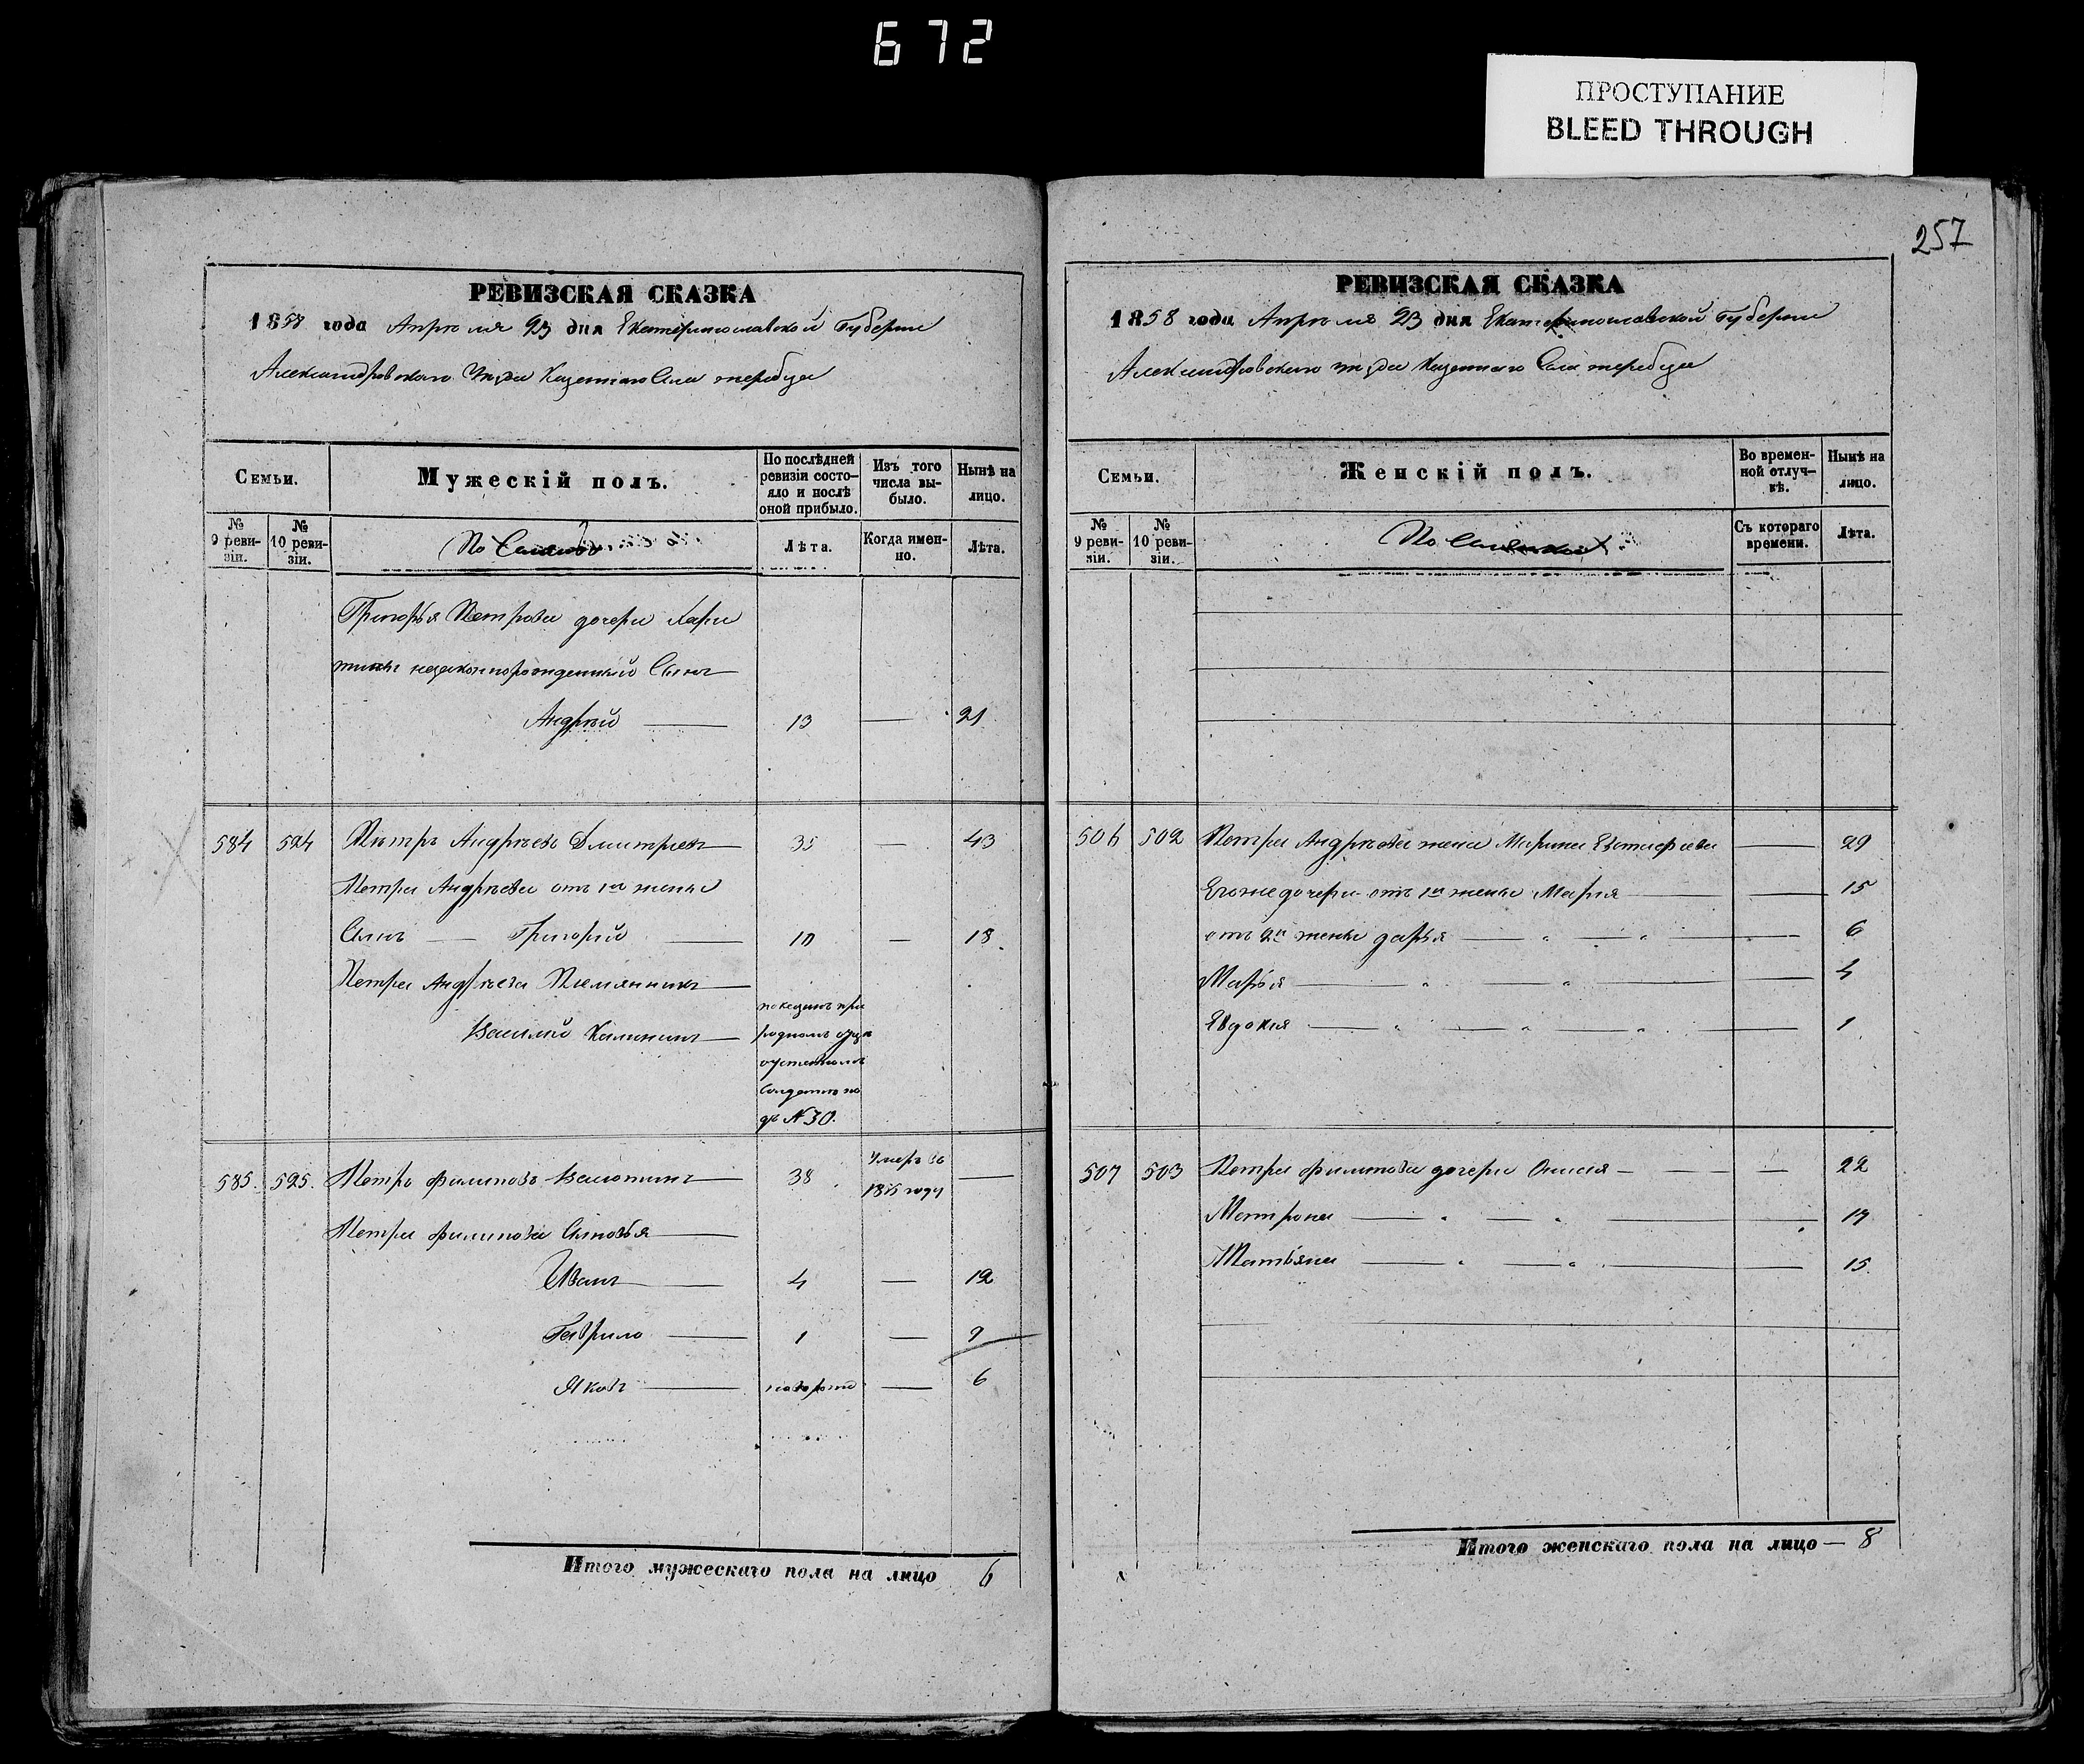 672
ПРОСТУПАНИЕ
BLEED THROUGH
257
РЕВИЗСКАЯ СКАЗКА
1858 года Апреля 23 дня Екатеринославской Губернии
Александровского уезда Казенного Села теребуга
Семьи.
Мужескій полъ.
По послѣдней ревизіи состояло и послѣ оной прибыло.
Изъ того числа выбыло.
Нынѣ на лицо.
№ 9 ревизіи.
№ 10 ревизіи.
Лѣта.
Когда именно.
Лѣта.
Григорья Петрова дочери Хари
тины незаконнорожденный Сынъ
Андрей 13 — 21
584 524 Петръ Андреевъ Дмитріевъ 35 — 43
Петра Андреева отъ 1й жены
Сынъ — Григорій — 10 — 18
Петра Андреева Племянникъ
Василий Калининъ
показанъ при
родномъ
подъ N 30.
585. 525. Петръ Филиповъ 38 Умеръ въ
1855 году —
Петра Филипова Сыновья
Иванъ 4 — 12
Гаврило 1 — 9
Яковъ — 6
Итого мужескаго пола на лицо 6
РЕВИЗСКАЯ СКАЗКА
1858 года Апреля 23 дня Екатеринославской Губернии
Александровского уезда Казенного Села теребуга
Семьи.
Женскій полъ.
Во временной отлучкѣ.
Нынѣ на лицо.
№ 9 ревизіи.
№ 10 ревизіи.
Съ котораго времени.
Лѣта.
506 502 Петра Андреева жена Марина Евстафиева — 29
Егоже дочери отъ 1й жены Мария — 15
отъ 2й жены дарья — 6
Марья — 4
Явдокия — 1
507 503 Петра Филипова дочери — 22
Матрона — 19
Татьяна — 15
Итого женскаго пола на лицо — 8